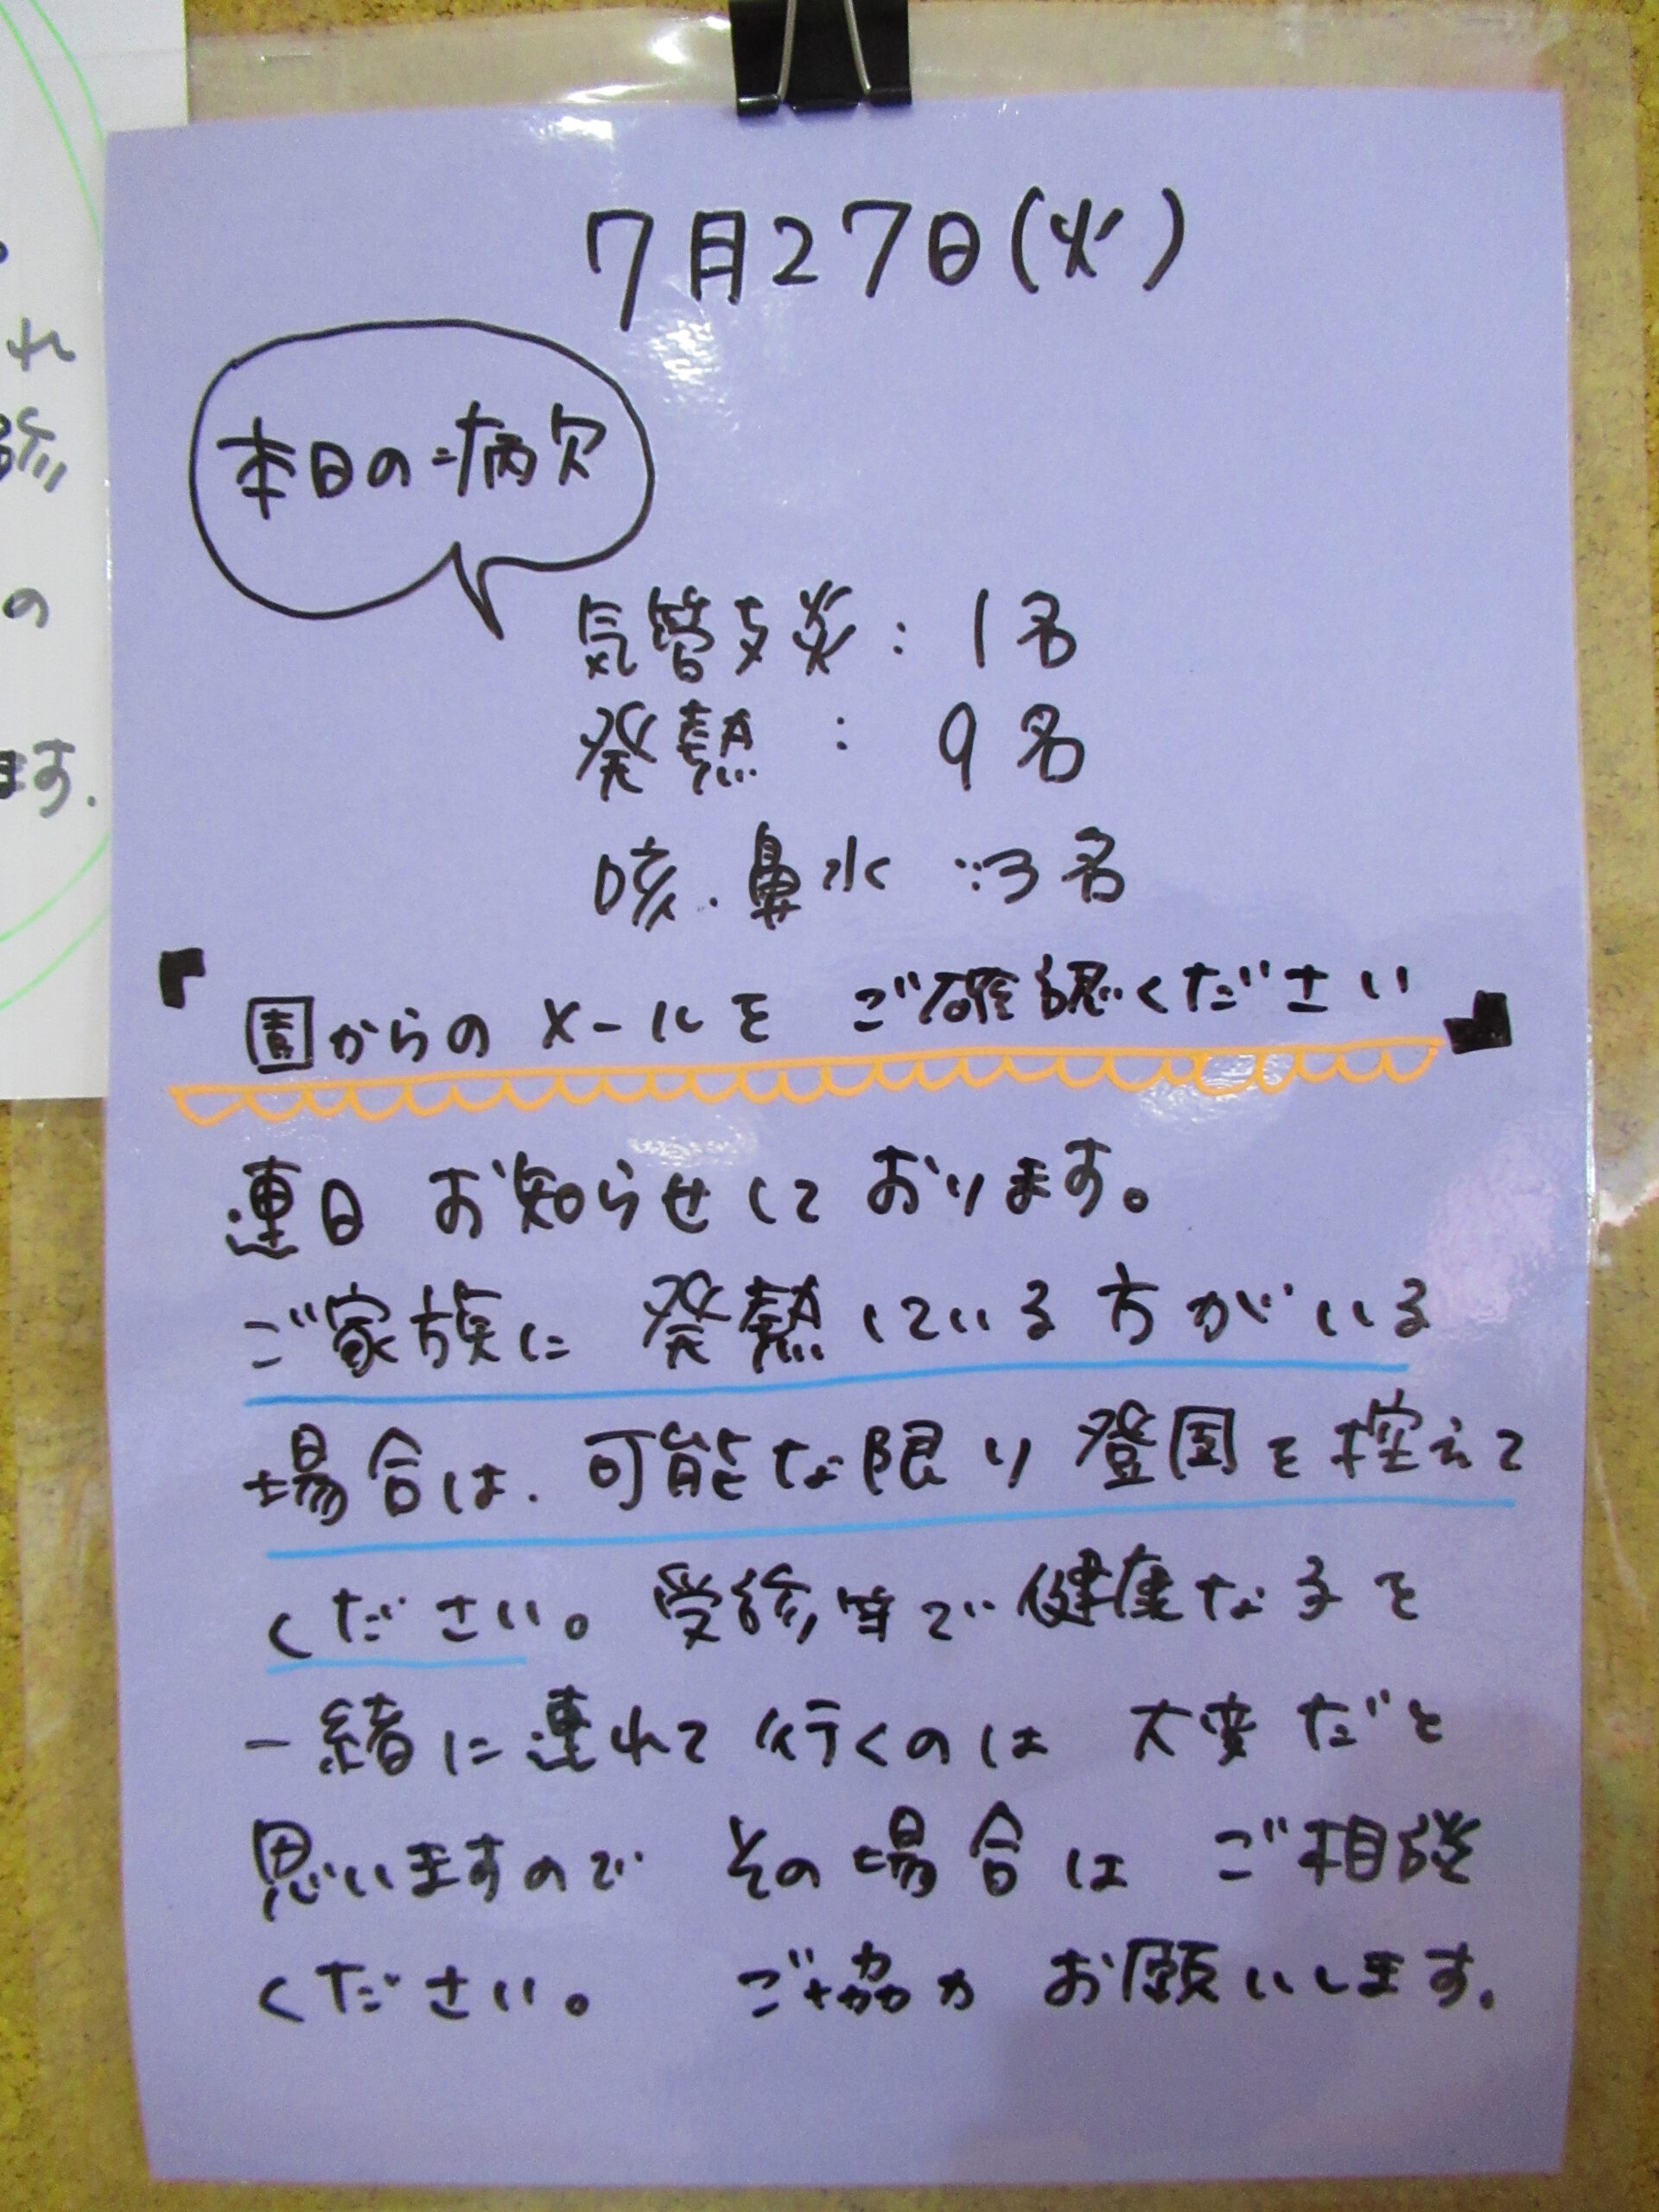 7月27日(火)
本日の病欠
気管支炎：1名
発熱：9名
咳．鼻水：3名
『園からのメールをご確認ください』
連日お知らせしております。
ご家族に発熱している方がいる
場合は．可能な限り登園を控えて
ください。受診等で健康な子を
一緒に連れて行くのは大変だと
思いますのでその場合はご相談
ください。ご協力お願いします．
れ
診
の
ます．